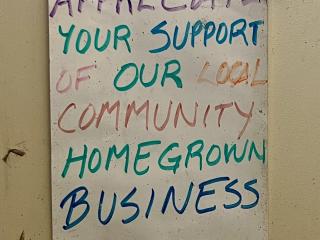 APPRECIATE
YOUR SUPPORT
OF OUR LOCAL
COMMUNITY
HOMEGROWN
BUSINESS